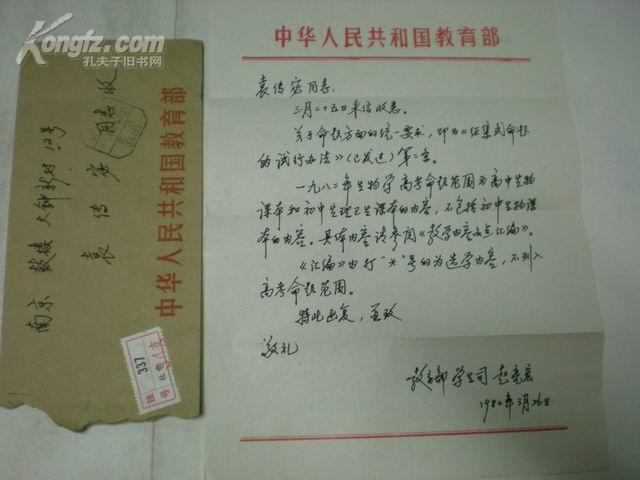 Kongfz.com
孔夫子旧书网
中华人民共和国教育部
南京 鼓楼 大钟新村 12号
袁传宓
同志收
中华人民共和国教育部
337
袁传宓同志:
三月二十五日来信收悉。
关于命题方面的统一要求,即为《征集式命题
的试行办法》(已发过)第二条。
一九八二年生物学高考命题范围为高中生物
课本和初中生理卫生课本的内容,不包括初中生物课
本的内容。具体内容请参阅《教学内容要点汇编》。
《汇编》中打"*"号的为选学内容,不列入
高考命题范围。
特此函复,并致
敬礼
教育部学生司
1982年3月26日